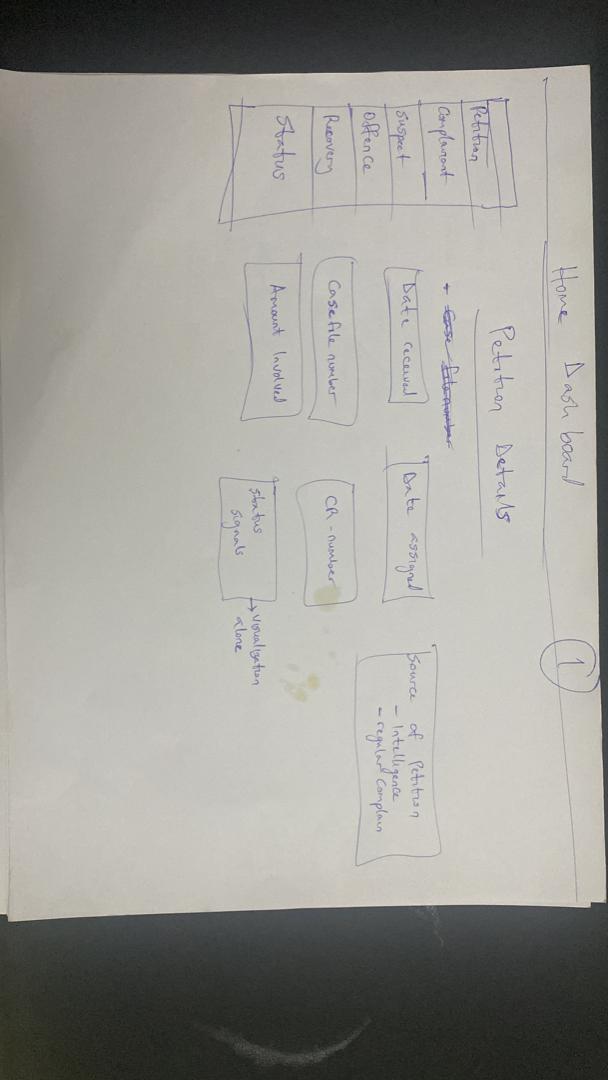 Home Dashboard
1
Petition
Complainant
Suspect
Offence
Recovery
Status
Petition Details
+ Case file number
Date received
Date assigned
Source of Petition
- Intelligence
- regular Complain
Case file number
CR - number
Amount Involved
Status
signals
→ visualization
alone